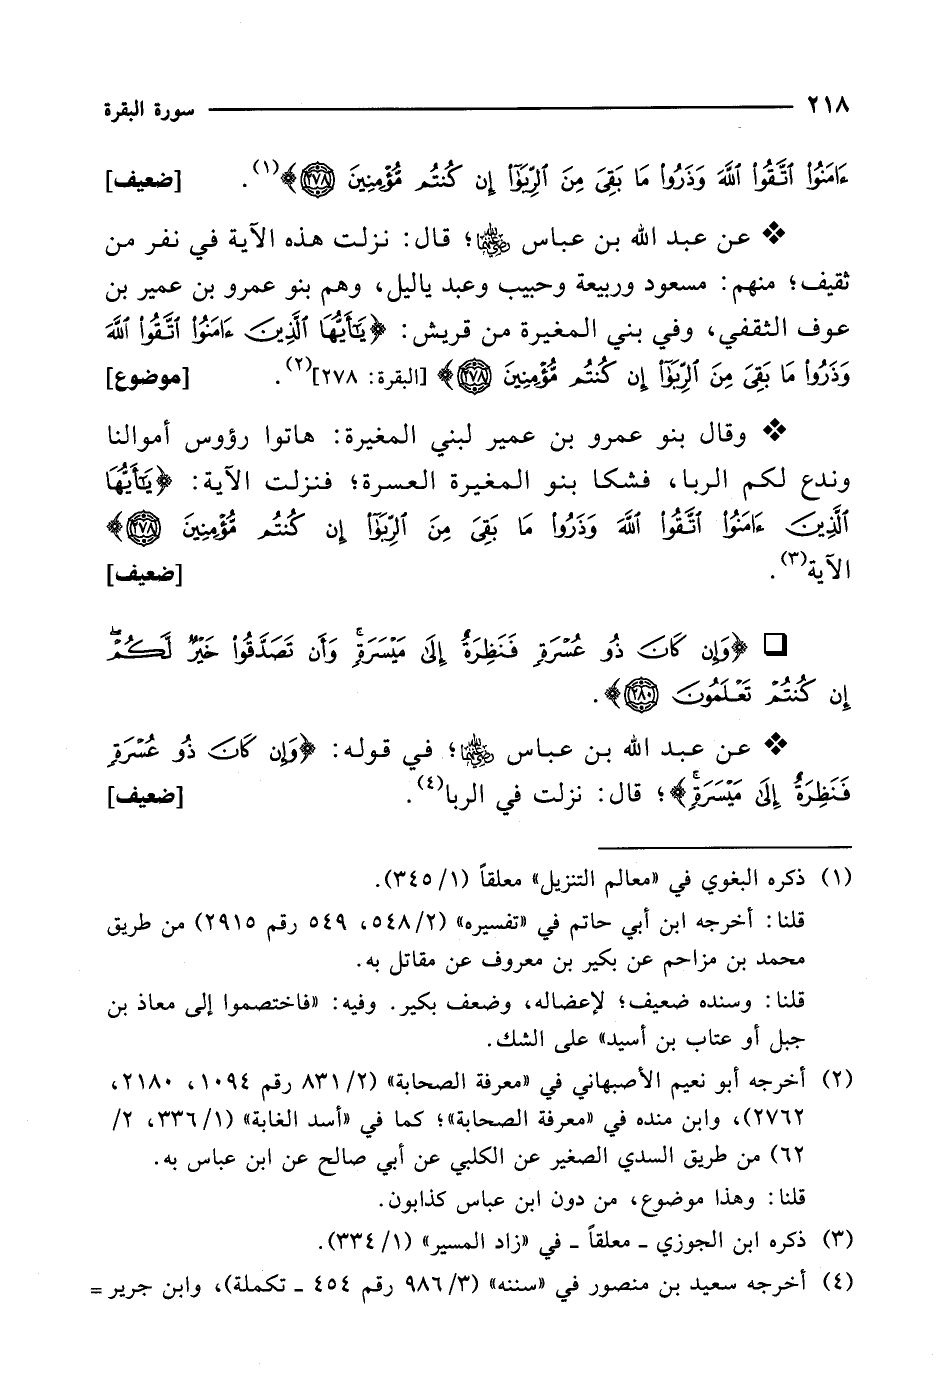 ٢١٨ سورة البقرة
ءَامَنُوا۟ ٱتَّقُوا۟ ٱللَّهَ وَذَرُوا۟ مَا بَقِىَ مِنَ ٱلرِّبَوٰٓا۟ إِن كُنتُم مُّؤْمِنِينَ ﴿٢٧٨﴾﴾(١). [ضعيف]
❖ عن عبد الله بن عباس رضي الله عنهما؛ قال: نزلت هذه الآية في نفر من
ثقيف؛ منهم: مسعود وربيعة وحبيب وعبد ياليل، وهم بنو عمرو بن عمير بن
عوف الثقفي، وفي بني المغيرة من قريش: ﴿يَٰٓأَيُّهَا ٱلَّذِينَ ءَامَنُوا۟ ٱتَّقُوا۟ ٱللَّهَ
وَذَرُوا۟ مَا بَقِىَ مِنَ ٱلرِّبَوٰٓا۟ إِن كُنتُم مُّؤْمِنِينَ ﴿٢٧٨﴾﴾ [البقرة: ٢٧٨](٢). [موضوع]
❖ وقال بنو عمرو بن عمير لبني المغيرة: هاتوا رؤوس أموالنا
وندع لكم الربا، فشكا بنو المغيرة العسرة؛ فنزلت الآية: ﴿يَٰٓأَيُّهَا
ٱلَّذِينَ ءَامَنُوا۟ ٱتَّقُوا۟ ٱللَّهَ وَذَرُوا۟ مَا بَقِىَ مِنَ ٱلرِّبَوٰٓا۟ إِن كُنتُم مُّؤْمِنِينَ ﴿٢٧٨﴾﴾
الآية(٣). [ضعيف]
❑ ﴿وَإِن كَانَ ذُو عُسْرَةٍ فَنَظِرَةٌ إِلَىٰ مَيْسَرَةٍ ۚ وَأَن تَصَدَّقُوا۟ خَيْرٌ لَّكُمْ ۖ
إِن كُنتُمْ تَعْلَمُونَ ﴿٢٨٠﴾﴾.
❖ عن عبد الله بن عباس رضي الله عنهما؛ في قوله: ﴿وَإِن كَانَ ذُو عُسْرَةٍ
فَنَظِرَةٌ إِلَىٰ مَيْسَرَةٍ ۚ﴾؛ قال: نزلت في الربا(٤). [ضعيف]
(١) ذكره البغوي في «معالم التنزيل» معلقاً (١/ ٣٤٥).
قلنا: أخرجه ابن أبي حاتم في «تفسيره» (٢/ ٥٤٨، ٥٤٩ رقم ٢٩١٥) من طريق
محمد بن مزاحم عن بكير بن معروف عن مقاتل به.
قلنا: وسنده ضعيف؛ لإعضاله، وضعف بكير. وفيه: «فاختصموا إلى معاذ بن
جبل أو عتاب بن أسيد» على الشك.
(٢) أخرجه أبو نعيم الأصبهاني في «معرفة الصحابة» (٢/ ٨٣١ رقم ١٠٩٤، ٢١٨٠،
٢٧٦٢)، وابن منده في «معرفة الصحابة»؛ كما في «أسد الغابة» (١/ ٣٣٦، ٢/
٦٢) من طريق السدي الصغير عن الكلبي عن أبي صالح عن ابن عباس به.
قلنا: وهذا موضوع، من دون ابن عباس كذابون.
(٣) ذكره ابن الجوزي ـ معلقاً ـ في «زاد المسير» (١/ ٣٣٤).
(٤) أخرجه سعيد بن منصور في «سننه» (٣/ ٩٨٦ رقم ٤٥٤ ـ تكملة)، وابن جرير =